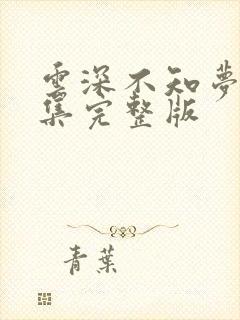 雲深不知夢
集完整版
青葉